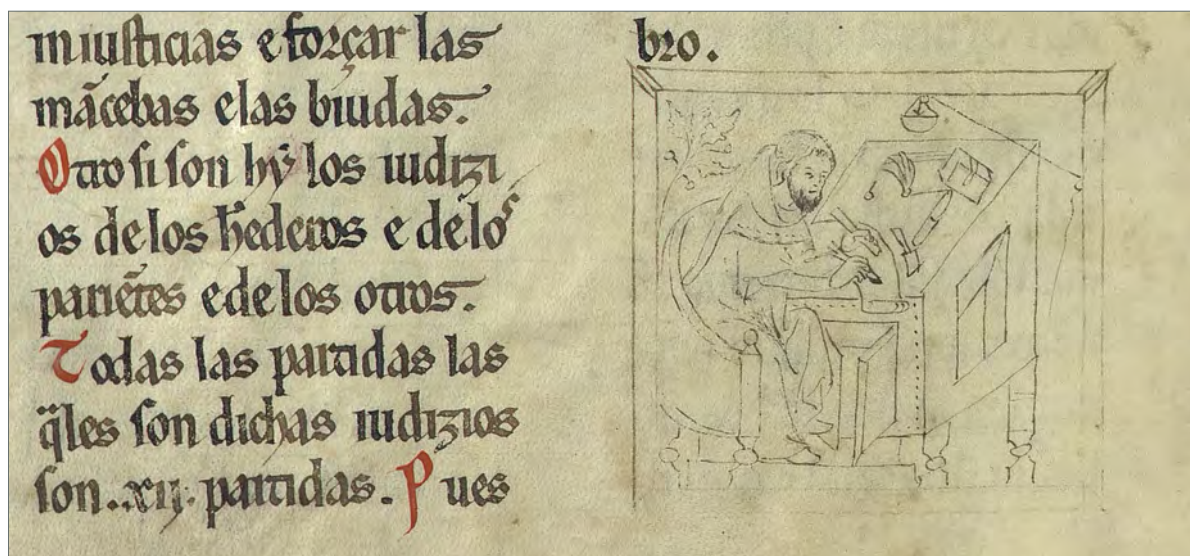 iniusticias e forçar las
mãcebas e las biudas.
Otro si son hy los iudizi
os de los hederos e de los
pariẽtes e de los otros.
Todas las partidas las
q̃les son dichas iudizios
son .xij. partidas. Pues
bro.